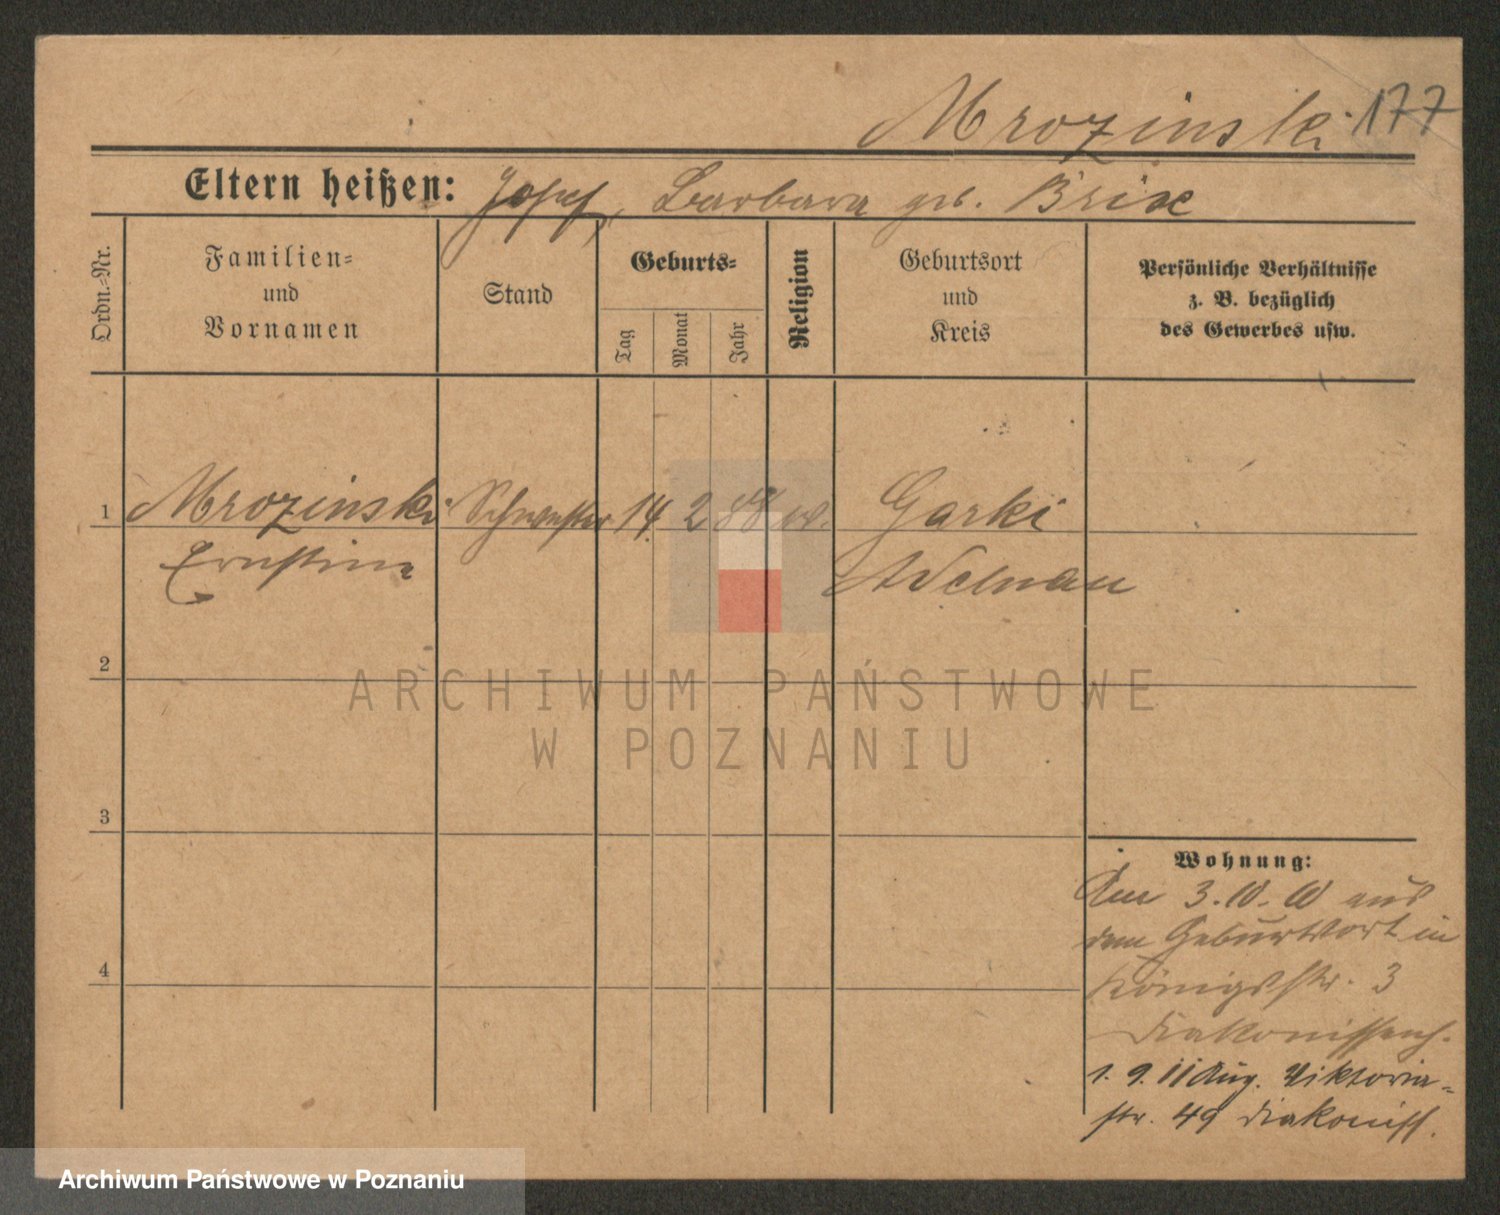 Mrozinski 177
Eltern heißen: Josef, Barbara geb. Brix
Ordn.-Nr.
Familien-
und
Vornamen
Stand
Geburts-
Tag
Monat
Jahr
Religion
Geburtsort
und
Kreis
Persönliche Verhältnisse
z. B. bezüglich
des Gewerbes usw.
1 Mrozinski Schwester 14. 2 88 Garki
Ernstine Adelnau
2
3
4
Wohnung:
Am 3.10. aus
dem Geburtsort in
Königsstr. 3
Diakonissenh.
1. 9. 11 Aug. Viktoria-
str. 49 Diakoniss.
ARCHIWUM PAŃSTWOWE
W POZNANIU
Archiwum Państwowe w Poznaniu